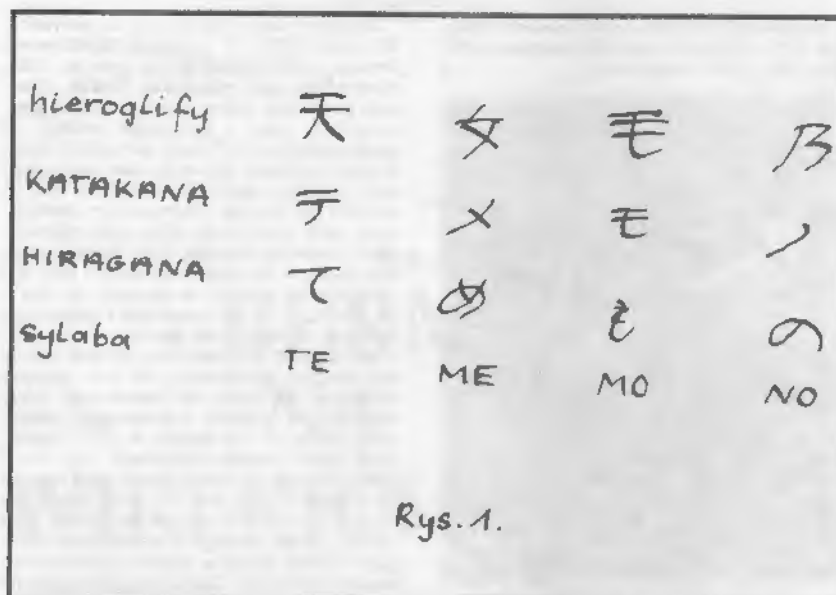 hieroglify 天 女 毛 乃
KATAKANA テ メ モ ノ
HIRAGANA て め も の
sylaba TE ME MO NO
Rys. 1.